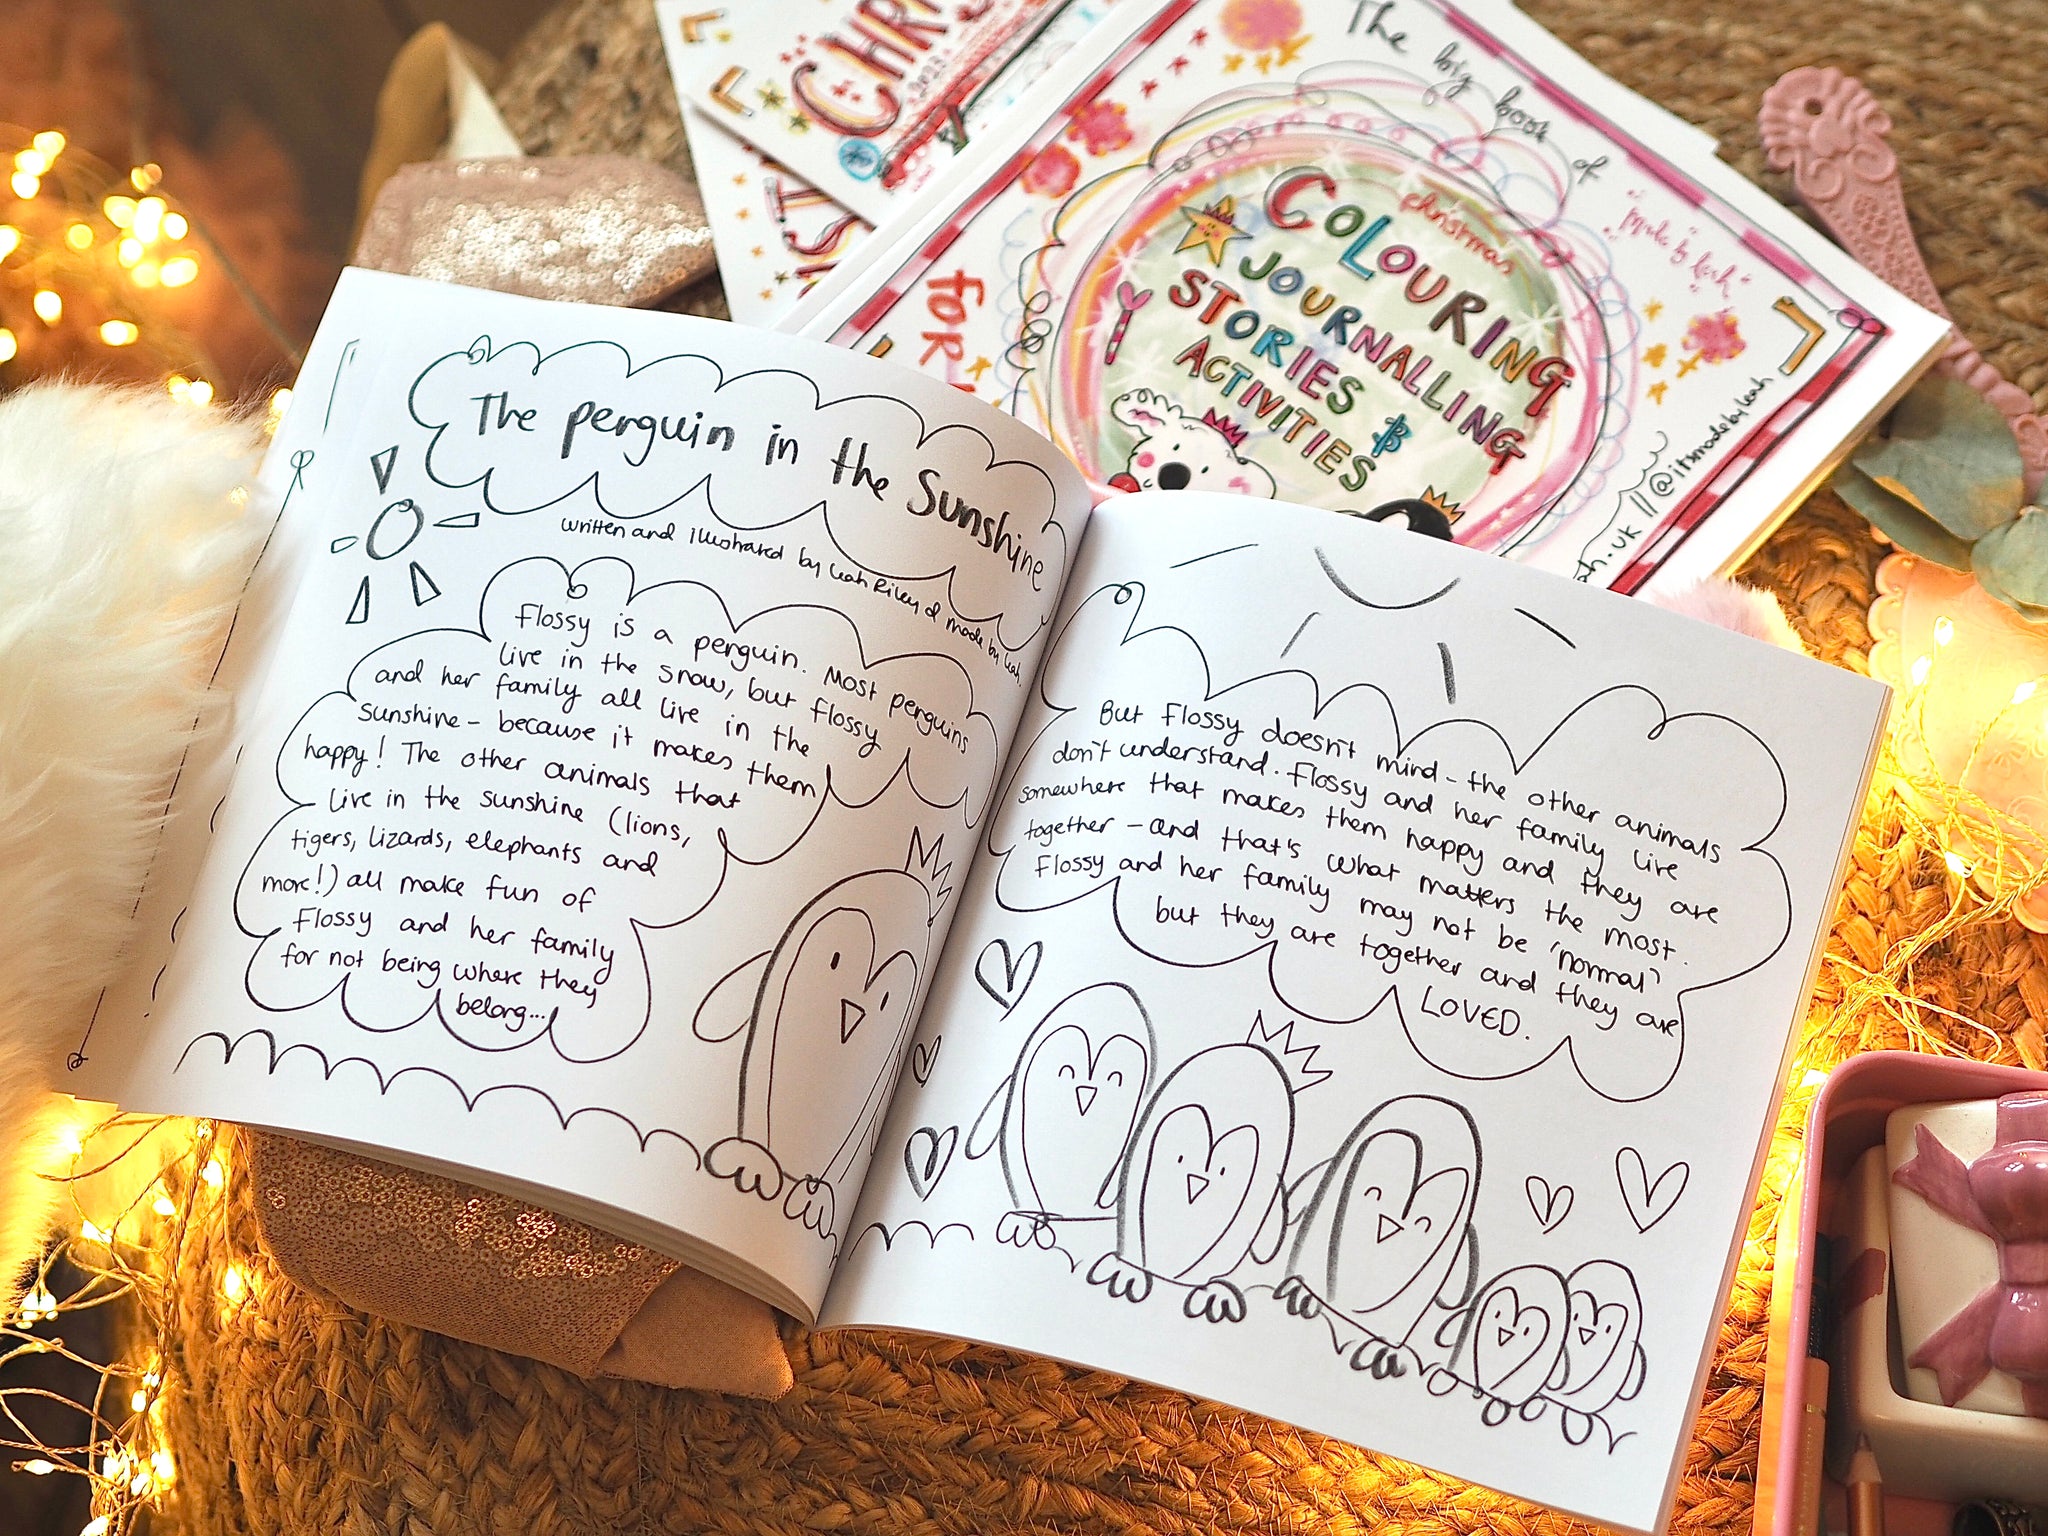 The penguin in the Sunshine
written and illustrated by Leah Riley of made by Leah.
Flossy is a penguin. Most penguins
live in the snow, but Flossy
and her family all live in the
sunshine - because it makes them
happy! The other animals that
live in the sunshine (lions,
tigers, lizards, elephants and
more!) all make fun of
Flossy and her family
for not being where they
belong...
But Flossy doesn't mind - the other animals
don't understand. Flossy and her family live
somewhere that makes them happy and they are
together - and that's what matters the most.
Flossy and her family may not be 'normal'
but they are together and they are
LOVED.
The big book of
christmas
COLOURING
JOURNALLING
STORIES &
ACTIVITIES
"made by Leah"
FOR
ah.uk || @itsmadebyleah
CHR
2023